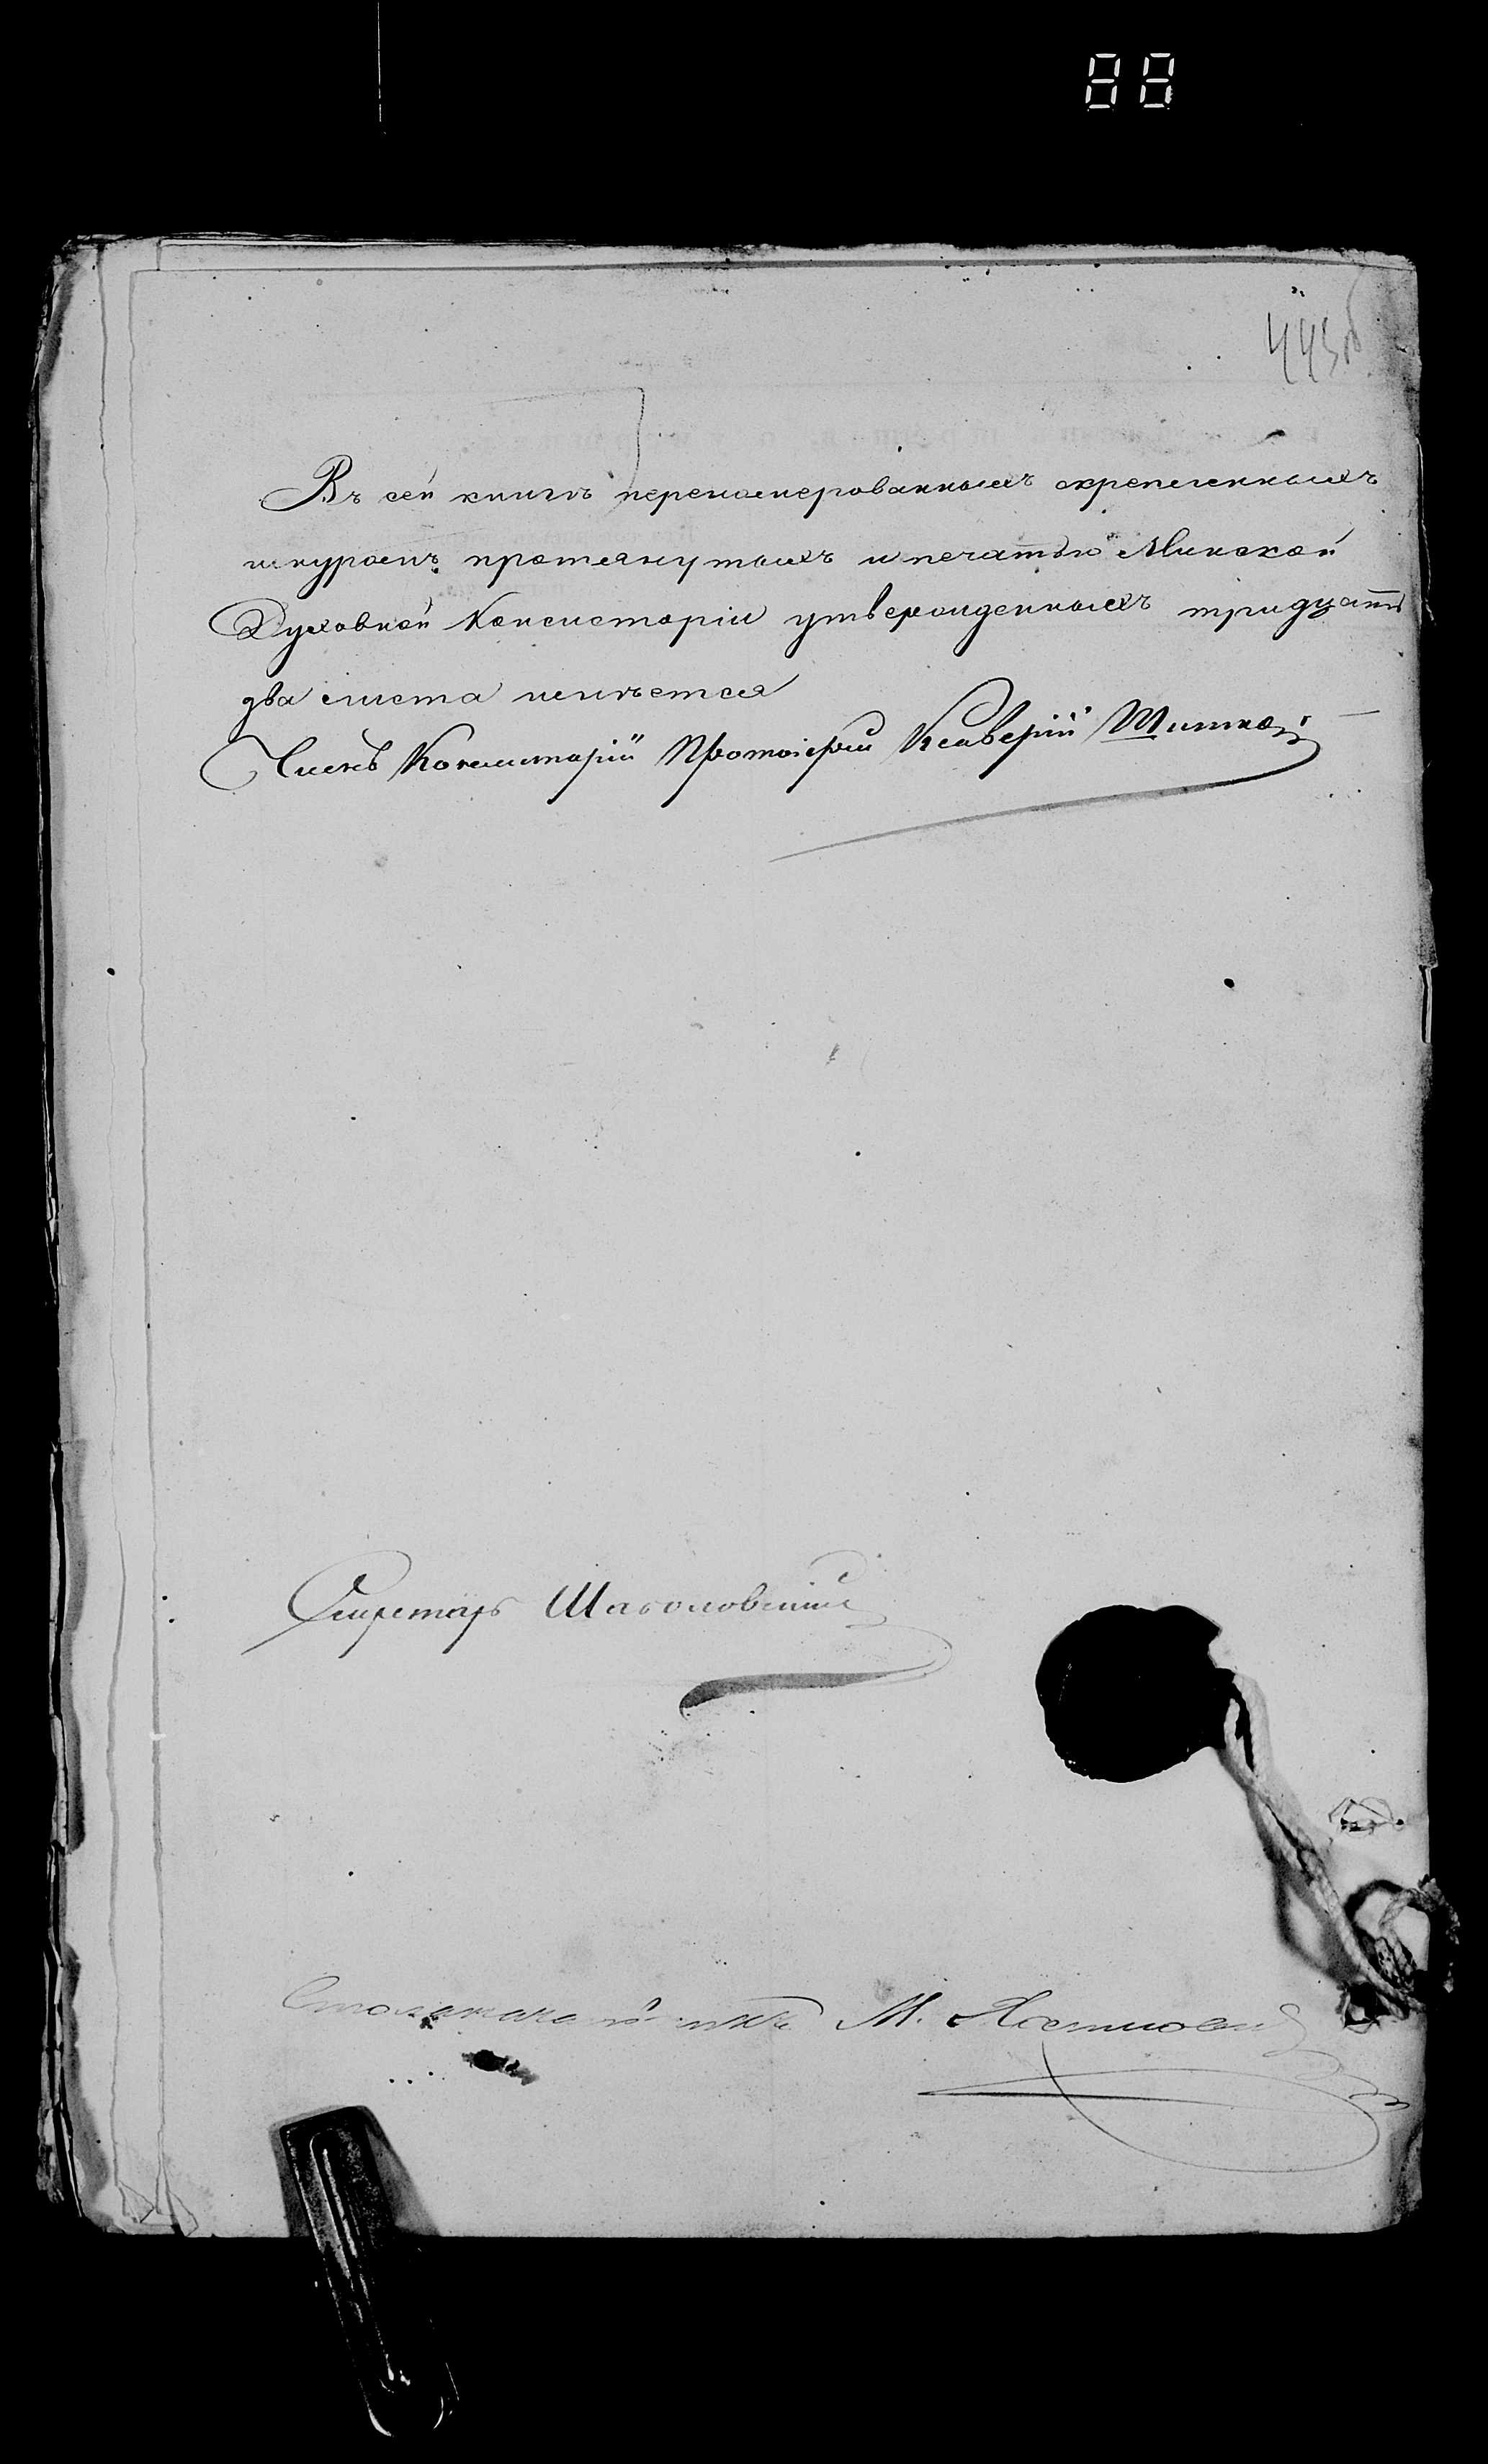 88
443об
Въ сей книгѣ перенамерованныхъ скрепленныхъ
шнуромъ протянутыхъ и печатью Минской
Духовной Консисторіи утвержденныхъ тридцать
два листа имѣется
Членъ Консисторіи Протоіерей Ксаверій
Секретарь
Столоначальникъ М.